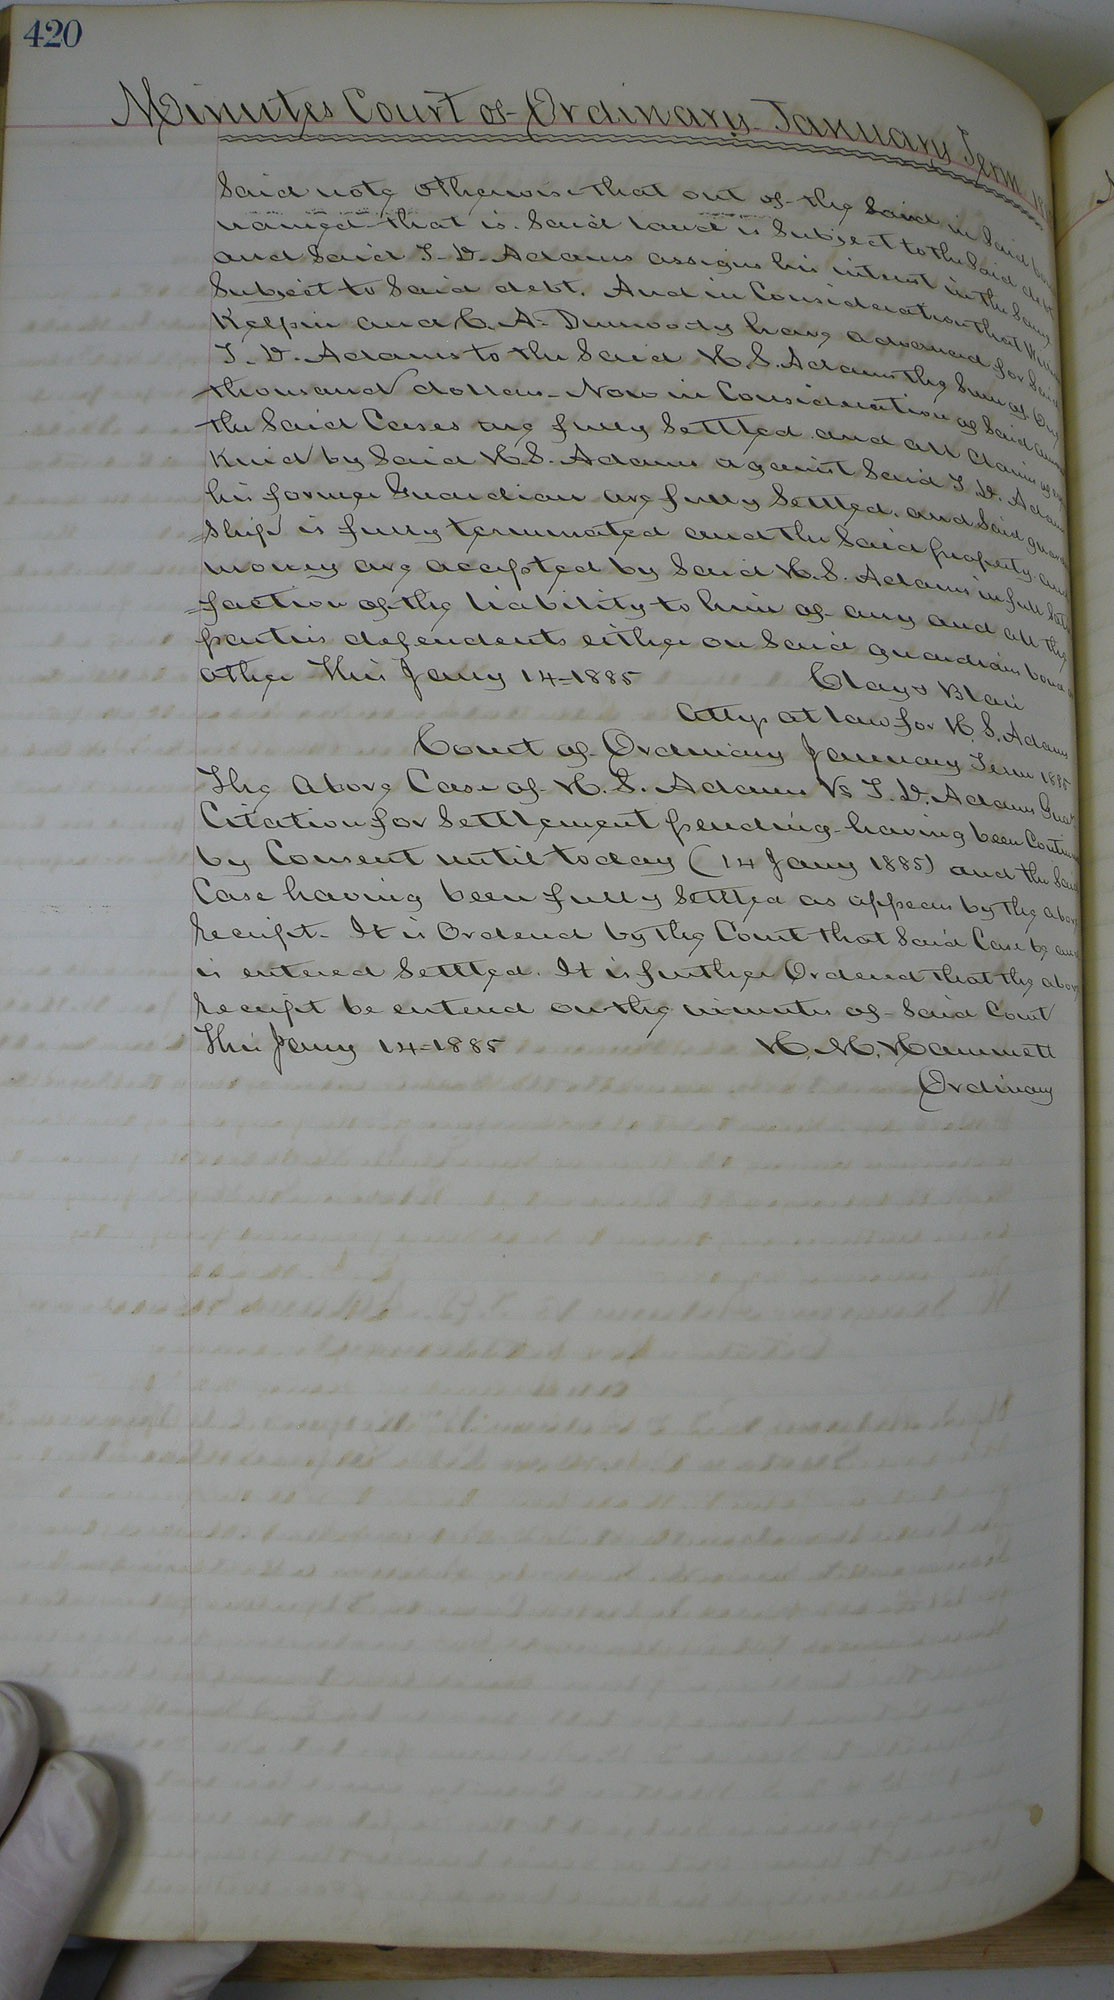 420
Minutes Court of Ordinary January Term
Said note otherwise that out of the Said in Said
named that is. Said land is Subject to the Said debt
and Said T. D. Adams assigns his intrest in the Same
Subject to Said debt. And in Consideration that
and C. A. Dunwoody have advanced for Said
T. D. Adams to the Said H. S. Adams the Sum of One
thousand dollars - Now in Consideration of Said
the Said Cases are fully Settled and all Claims of
Kind by Said H. S. Adams against Said T. D. Adams
his former Guardian are fully Settled. and Said guardian
ship is fully terminated and the Said property and
money are accepted by Said H. S. Adams in full Satis
faction of the liability to him of any and all the
parties defendents either on Said guardians bond or
other This Jany 14-1885 Clay & Blair
Attys at law for H. S. Adams
Court of Ordinary January Term 1885
The above Case of H. S. Adams Vs T. D. Adams
Citation for Settlement pending having been
by Consent until today (14 Jany 1885) and the Said
Case having been fully Settled as appears by the above
receipt. It is Ordered by the Court that Said Case be and
is entered Settled. It is further Ordered that the above
receipt be entered on the minutes of Said Court
This Jany 14-1885 H. M. Hammett
Ordinary